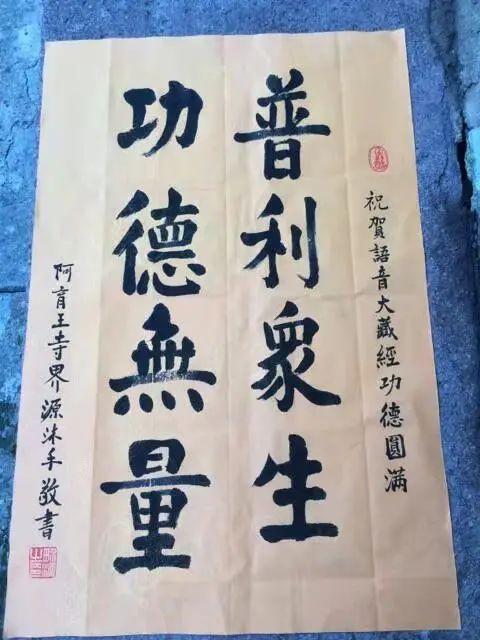 祝賀語音大藏經功德圓满
普利眾生
功德無量
阿育王寺界源沐手敬書